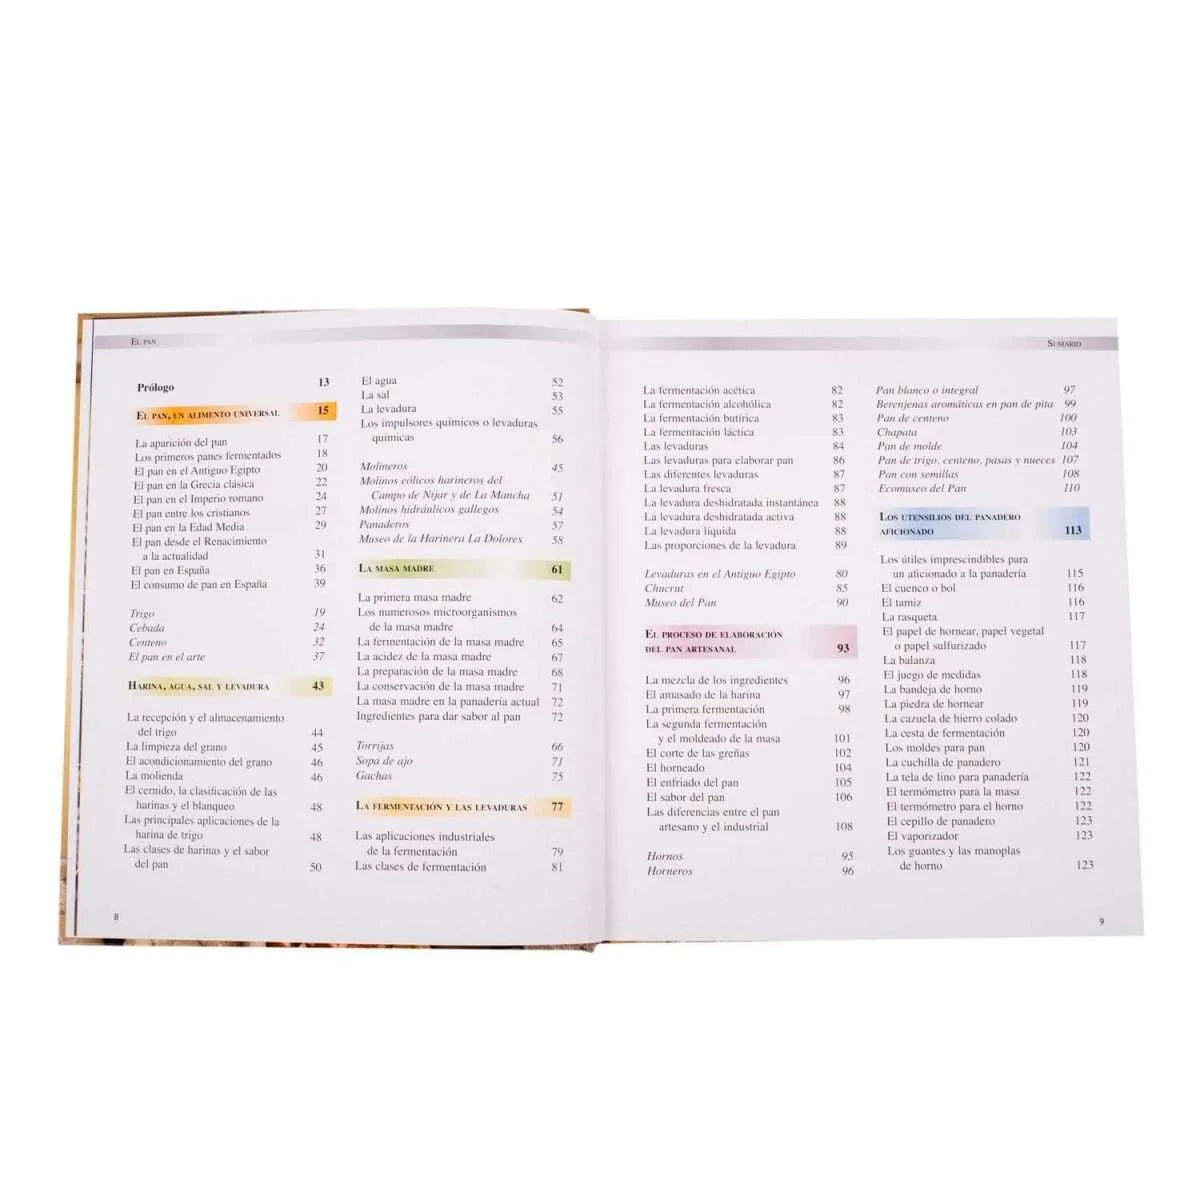 El pan
Prólogo 13
El pan, un alimento universal 15
La aparición del pan 17
Los primeros panes fermentados 18
El pan en el Antiguo Egipto 20
El pan en la Grecia clásica 22
El pan en el Imperio romano 24
El pan entre los cristianos 27
El pan en la Edad Media 29
El pan desde el Renacimiento
a la actualidad 31
El pan en España 36
El consumo de pan en España 39
Trigo 19
Cebada 24
Centeno 32
El pan en el arte 37
Harina, agua, sal y levadura 43
La recepción y el almacenamiento
del trigo 44
La limpieza del grano 45
El acondicionamiento del grano 46
La molienda 46
El cernido, la clasificación de las
harinas y el blanqueo 48
Las principales aplicaciones de la
harina de trigo 48
Las clases de harinas y el sabor
del pan 50
El agua 52
La sal 53
La levadura 55
Los impulsores químicos o levaduras
químicas 56
Molineros 45
Molinos eólicos harineros del
Campo de Níjar y de La Mancha 51
Molinos hidráulicos gallegos 54
Panaderos 57
Museo de la Harinera La Dolores 58
La masa madre 61
La primera masa madre 62
Los numerosos microorganismos
de la masa madre 64
La fermentación de la masa madre 65
La acidez de la masa madre 67
La preparación de la masa madre 68
La conservación de la masa madre 71
La masa madre en la panadería actual 72
Ingredientes para dar sabor al pan 72
Torrijas 66
Sopa de ajo 71
Gachas 75
La fermentación y las levaduras 77
Las aplicaciones industriales
de la fermentación 79
Las clases de fermentación 81
8
Sumario
La fermentación acética 82
La fermentación alcohólica 82
La fermentación butírica 83
La fermentación láctica 83
Las levaduras 84
Las levaduras para elaborar pan 86
Las diferentes levaduras 87
La levadura fresca 87
La levadura deshidratada instantánea 88
La levadura deshidratada activa 88
La levadura líquida 88
Las proporciones de la levadura 89
Levaduras en el Antiguo Egipto 80
Chucrut 85
Museo del Pan 90
El proceso de elaboración
del pan artesanal 93
La mezcla de los ingredientes 96
El amasado de la harina 97
La primera fermentación 98
La segunda fermentación
y el moldeado de la masa 101
El corte de las greñas 102
El horneado 104
El enfriado del pan 105
El sabor del pan 106
Las diferencias entre el pan
artesano y el industrial 108
Hornos 95
Horneros 96
Pan blanco o integral 97
Berenjenas aromáticas en pan de pita 99
Pan de centeno 100
Chapata 103
Pan de molde 104
Pan de trigo, centeno, pasas y nueces 107
Pan con semillas 108
Ecomuseo del Pan 110
Los utensilios del panadero
aficionado 113
Los útiles imprescindibles para
un aficionado a la panadería 115
El cuenco o bol 116
El tamiz 116
La rasqueta 117
El papel de hornear, papel vegetal
o papel sulfurizado 117
La balanza 118
El juego de medidas 118
La bandeja de horno 119
La piedra de hornear 119
La cazuela de hierro colado 120
La cesta de fermentación 120
Los moldes para pan 120
La cuchilla de panadero 121
La tela de lino para panadería 122
El termómetro para la masa 122
El termómetro para el horno 122
El cepillo de panadero 123
El vaporizador 123
Los guantes y las manoplas
de horno 123
9